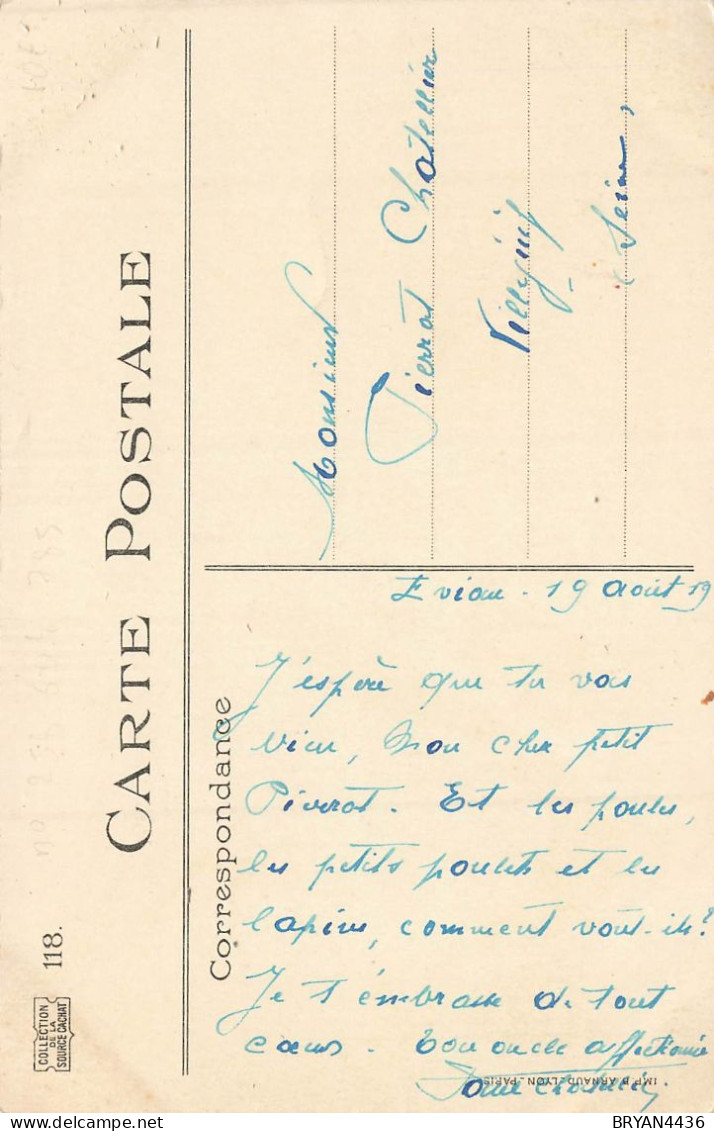 CARTE POSTALE
118.
COLLECTION
DE LA
SOURCE CACHAT
Correspondance
Monsieur
Pierrot Chatellier
Villejuif
Seine
Evian - 19 août 19
J'espère que tu vas
bien, mon cher petit
Pierrot. Et les poules,
les petits poulets et les
lapins, comment vont-ils?
Je t'embrasse de tout
cœur. Ton oncle affectionné
IMP. B. ARNAUD_LYON_PARIS
BRYAN4436